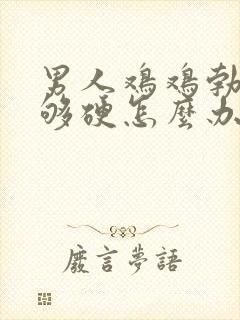 男人鸡鸡勃
够硬怎麼办
廢言夢語